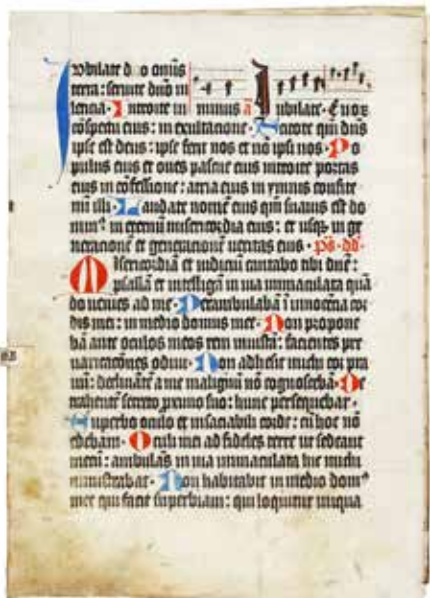 Iubilate d o omnis
terra: seruite dño in
leticia. Introite in minus a Iubilate. Euoue
cõspectu eius: in exultacione. Scitote qm̃ dñs
ipse est deus: ipse fecit nos et nõ ipsi nos. Po
pulus eius et oues pascue eius introite portas
eius in cõfessione: atria eius in ymnis confite
mĩ illi. Laudate nomẽ eius qm̃ suauis est do
minꝰ in eternũ misericordia eius: et usqꝫ in ge
neracionẽ et generacionẽ ueritas eius. p̃s. dd̃.
Misericordiã et iudiciũ cantabo tibi dñe:
psallã et intelligã in uia immaculata quã
do uenies ad me. Perambulabã ĩ innocẽtia cor
dis mei: in medio domus mee. Non propone
bã ante oculos meos rem iniustã: facientes pre
uaricacões odiui. Non adhesit michi cor pra
uũ: declinãtẽ a me malignũ nõ cognoscebã. De
trahentẽ secreto proximo suo: hunc persequebar.
Superbo oculo et insaciabili corde: cũ hoc nõ
edebam. Oculi mei ad fideles terre ut sedeant
mecũ: ambulãs in uia immaculata hic michi
ministrabat. Non habitabit in medio domꝰ
mee qui facit superbiam: qui loquitur iniqua